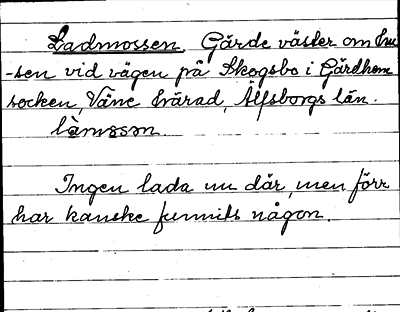 Ladmossen. Gärde väster om hu-
-sen vid vägen på Skogsbo i Gärdhem
socken, Väne härad, Älfsborgs län.
làmɔssən.
Ingen lada nu där, men förr
har kanske funnits någon.